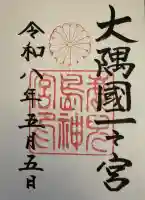 大隅國一之宮
鹿兒
島神
令和八年五月五日